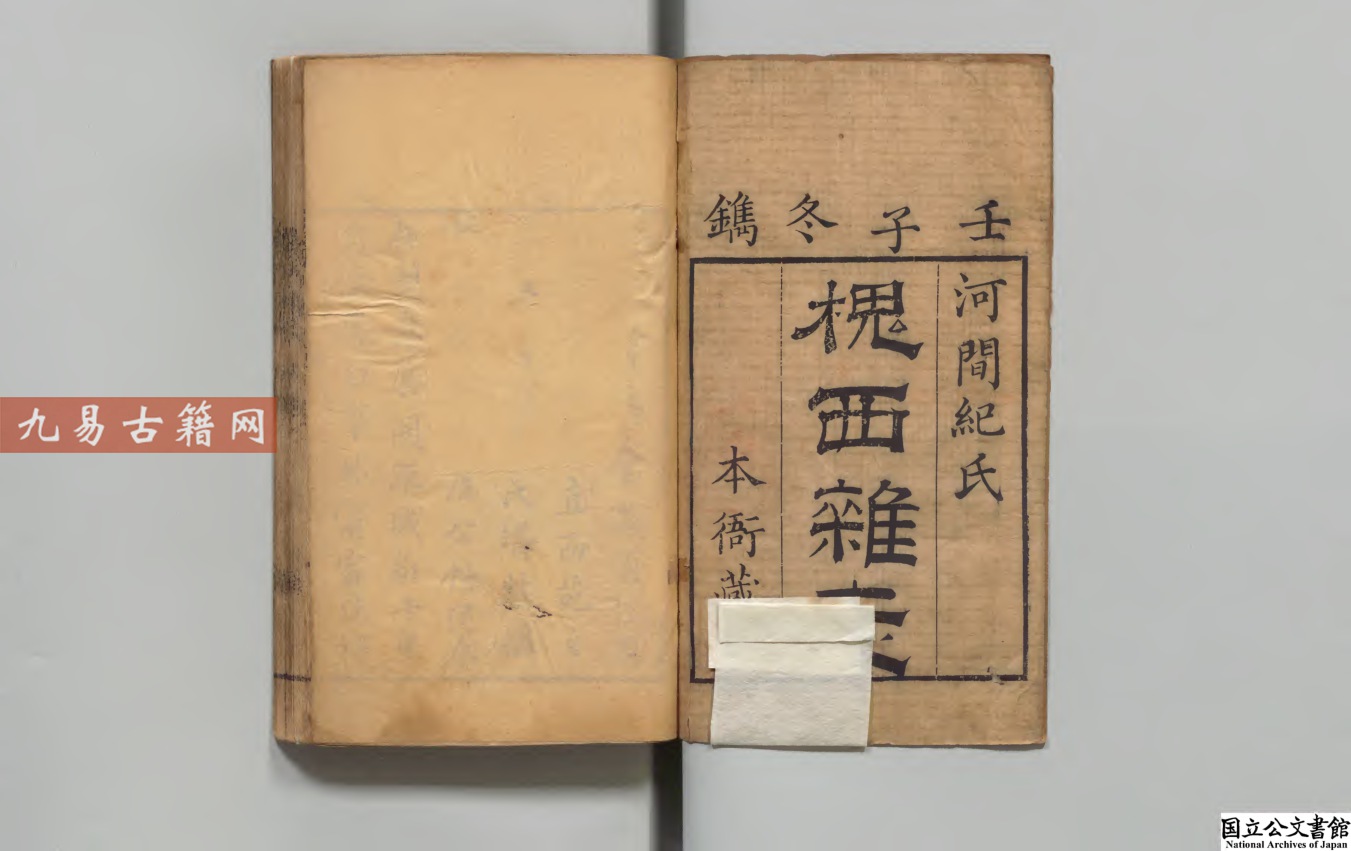 壬子冬鐫
河間紀氏
槐西雜志
本衙藏
九易古籍网
国立公文書館
National Archives of Japan